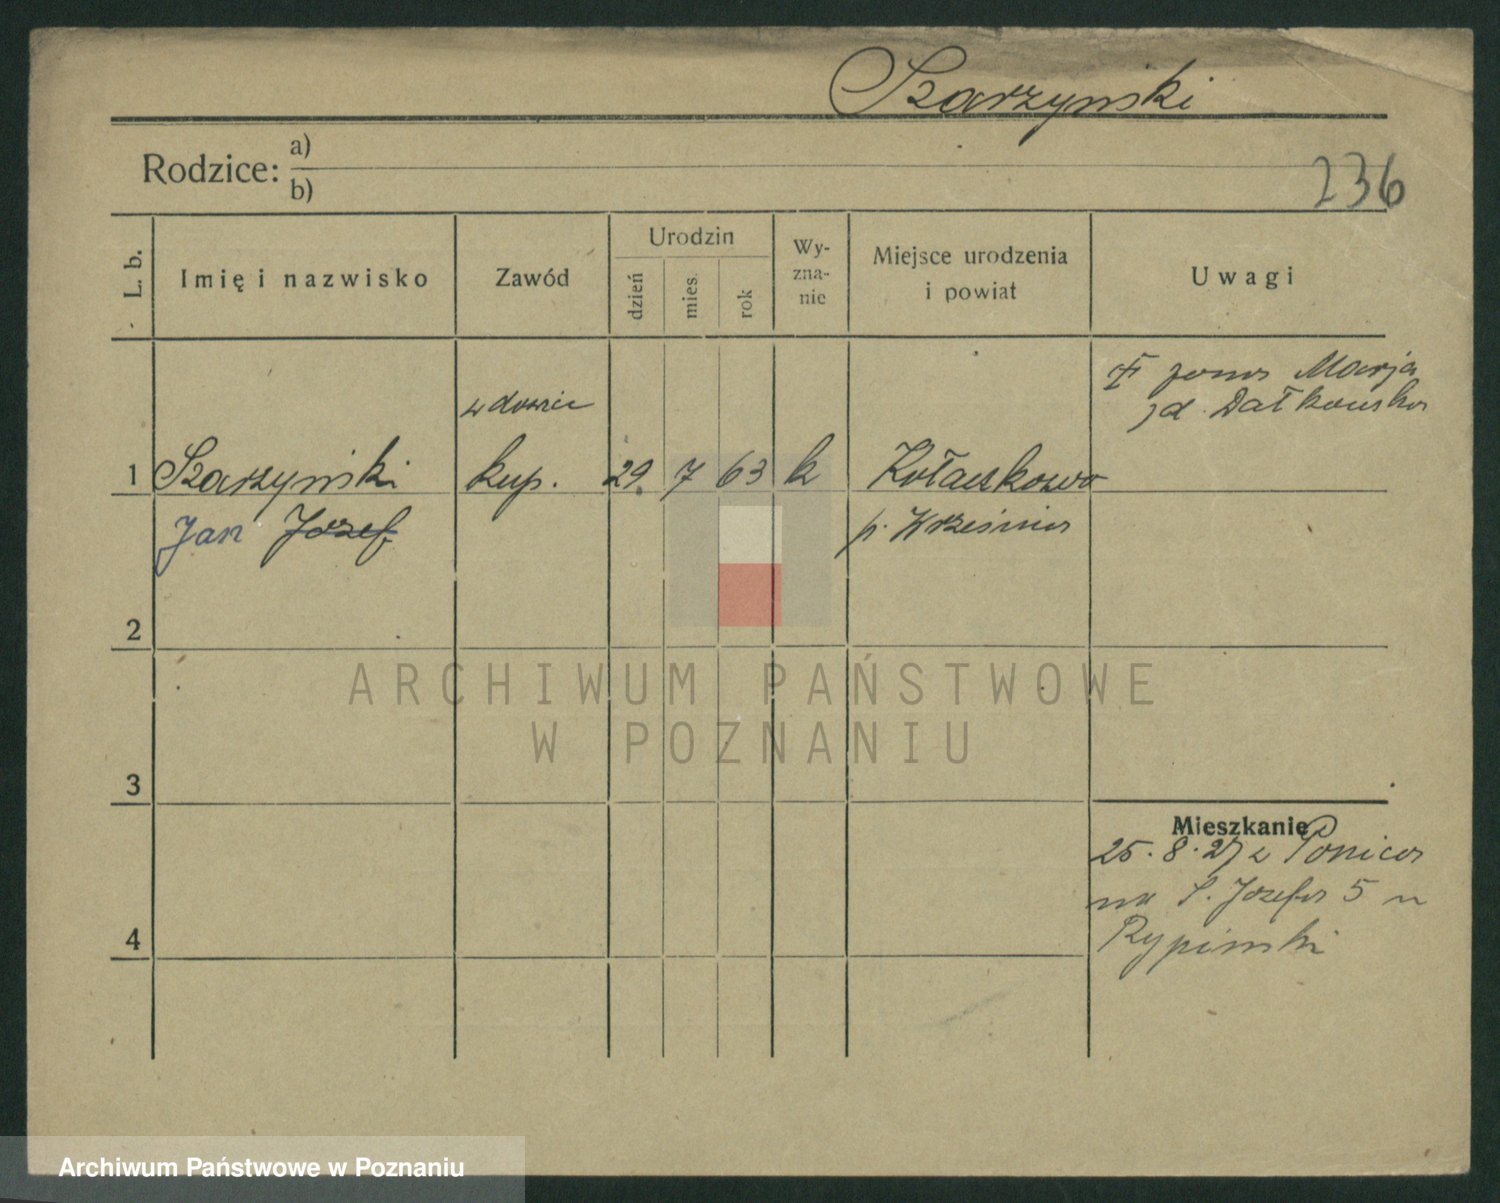 Szarzyński
Rodzice: a)
b)
236
L. b.
Imię i nazwisko
Zawód
Urodzin
dzień
mies.
rok
Wy-
zna-
nie
Miejsce urodzenia
i powiat
Uwagi
żona Marja
Dałkowska
wdowiec
1 Szarzyński kup. 29. 7 63 k Kołaczkowo
Jan Józef p. Września
2
3
4
Mieszkanie
25. 8. 27 z Ponieca
na S. Józefa 5 u
Rypiński
ARCHIWUM PAŃSTWOWE
W POZNANIU
Archiwum Państwowe w Poznaniu